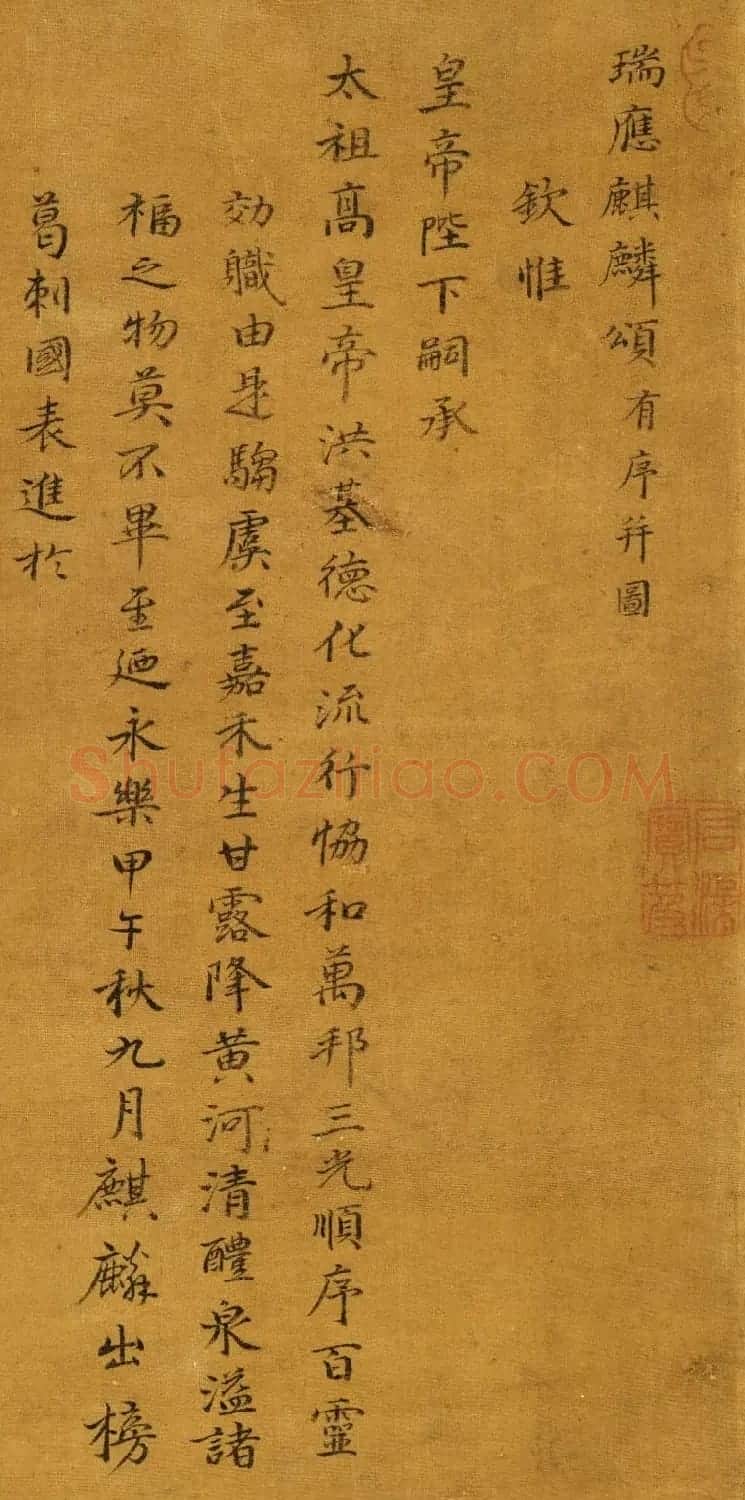 瑞應麒麟頌有序并圖
欽惟
皇帝陛下嗣承
太祖高皇帝洪基德化流行協和萬邦三光順序百靈
効職由是騶虞至嘉禾生甘露降黃河清醴泉溢諸
福之物莫不畢至迺永樂甲午秋九月麒麟出榜
葛剌國表進於
Shufazitiao.COM